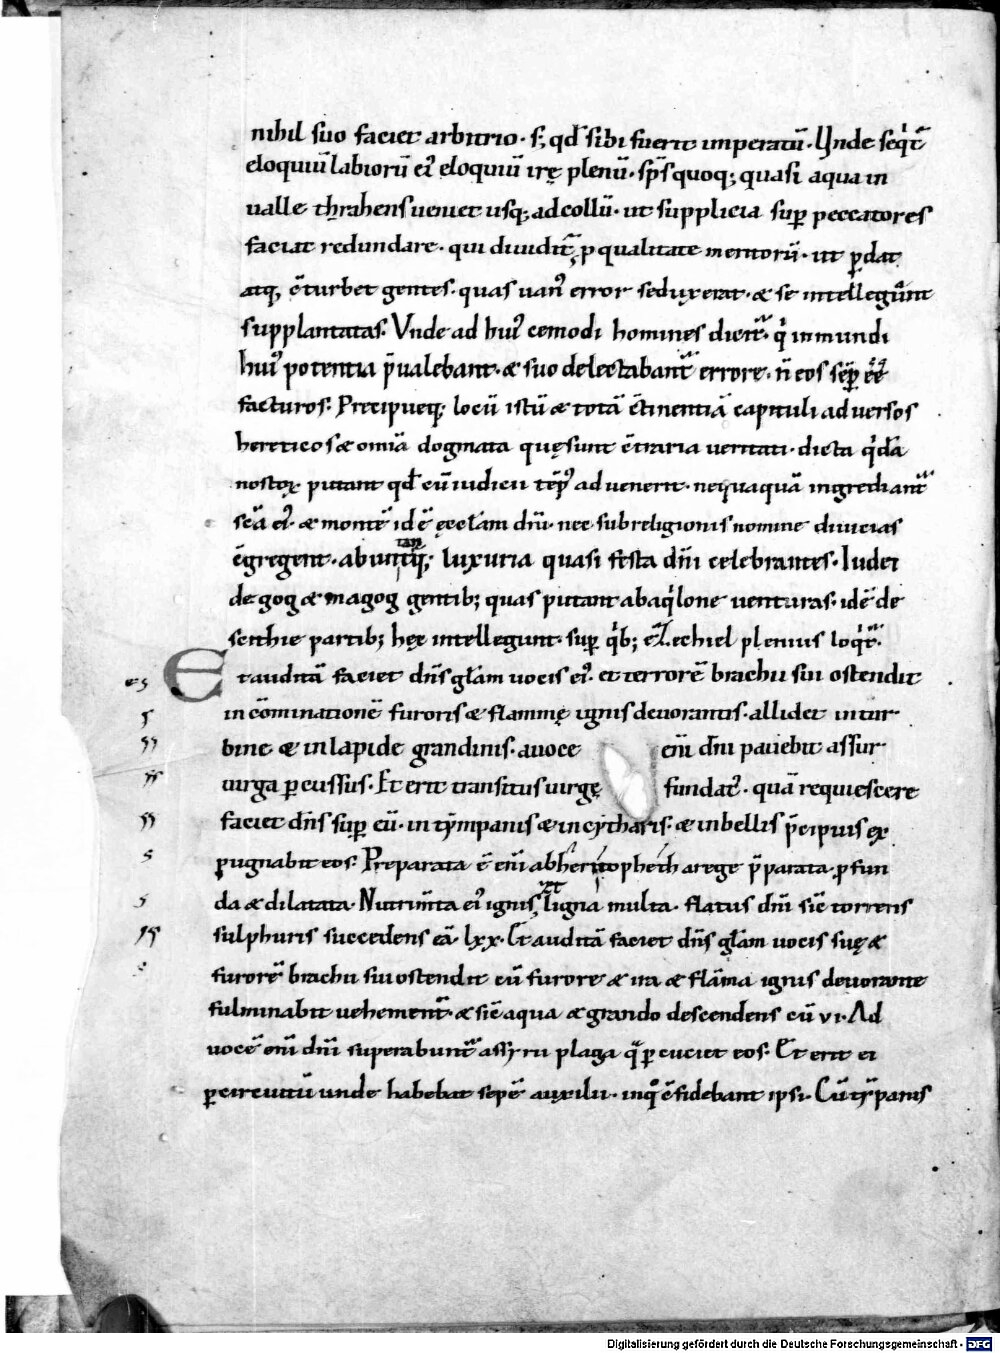 nihil suo faciet arbitrio · s; qd̄ sibi fuerit imperatū · Unde seqͥtᷓ
eloquiū labiorū eiꝰ eloquiū irę plenū · sp̄s quoq; quasi aqua in
ualle thrahens ueniet usq; ad collū · ut supplicia suꝑ peccatores
faciat redundare · qui diuiditᷓ ꝑ qualitate meritorū · ut ꝑdat
atq; c̄turbet gentes · quas uanꝰ error seduxerat · & se intellegūnt
supplantatas · Vnde ad huiꝰ cemodi homines dicitᷓ · qͥ in mundi
huiꝰ potentia p̄ualebant · & suo delectabantᷓ errore · n̄ eos seꝑ ee̅
facturos · Precipueq; locū istū & totā c̄tinentiā capituli aduersos
hereticos & omīa dogmata quę sunt c̄traria ueritati · dicta qͥdā
nostoꝝ putant qd̄ cū iudicii tēpꝰ aduenerit · nequaquā ingrediantᷓ
sc̄a eiꝰ · & montē id ē ęcclam dn̄i · nec sub religionis nomine diuicias
c̄gregent · abuntq; luxuria quasi festa dn̄i celebrantes · Iudei
tan
de gog & magog gentib; quas putant ab aqͥlone uenturas · idē de
scithie partib; hęc intellegunt · suꝑ qͥb; ezechiel plenius loqͥtᷓ ·
Et auditā faciet dn̄s gl̄am uocis eiꝰ · et terrorē brachii sui ostendit
in c̄ominationē furoris & flammę ignis deuorantis · allidet in tur
bine & in lapide grandinis · a uoce eni̅ dn̄i pauebit assur
uirga ꝑcussus · Et erit transitus uirgę fundatꝰ · quā requiescere
faciet dn̄s suꝑ eū · in tȳmpanis & in cytharis · & in bellis p̄cipuis ex
pugnabit eos · Preparata ē eni̅ ab heri topheth a rege p̄parata · ꝓfun
da & dilatata · Nutrim̄ta eiꝰ ignis & ligna multa · flatus dn̄i sic̄ torrens
sulphuris succedens eā · lxx · Et auditā faciet dn̄s gl̄am uocis suę &
furorē brachii sui ostendit cū furore & ira & flāma ignis deuorante
fulminabit uehementᷓ & sic̄ aqua & grando descendens cū vi · Ad
uocē eni̅ dn̄i superabuntᷓ assyrii plaga qᷓ ꝑcuciet eos · Et erit ei
ꝑ circuitū unde habebat sepē auxilii · in qͦ c̄fidebant ipsi · Cū tȳpanis
Digitalisierung gefördert durch die Deutsche Forschungsgemeinschaft - DFG